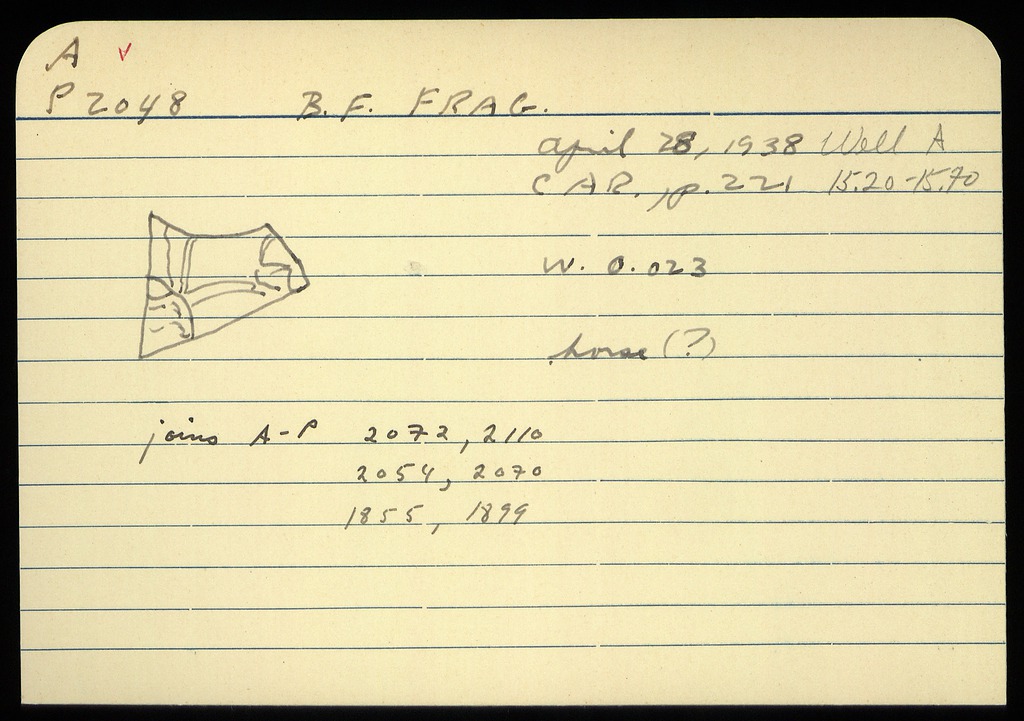 A ✓
P 2048 B.F. FRAG.
April 28, 1938 Well A
C A R. p. 221 15.20-15.70
W. 0.023
horse (?)
joins A-P 2072, 2110
2054, 2070
1855, 1899